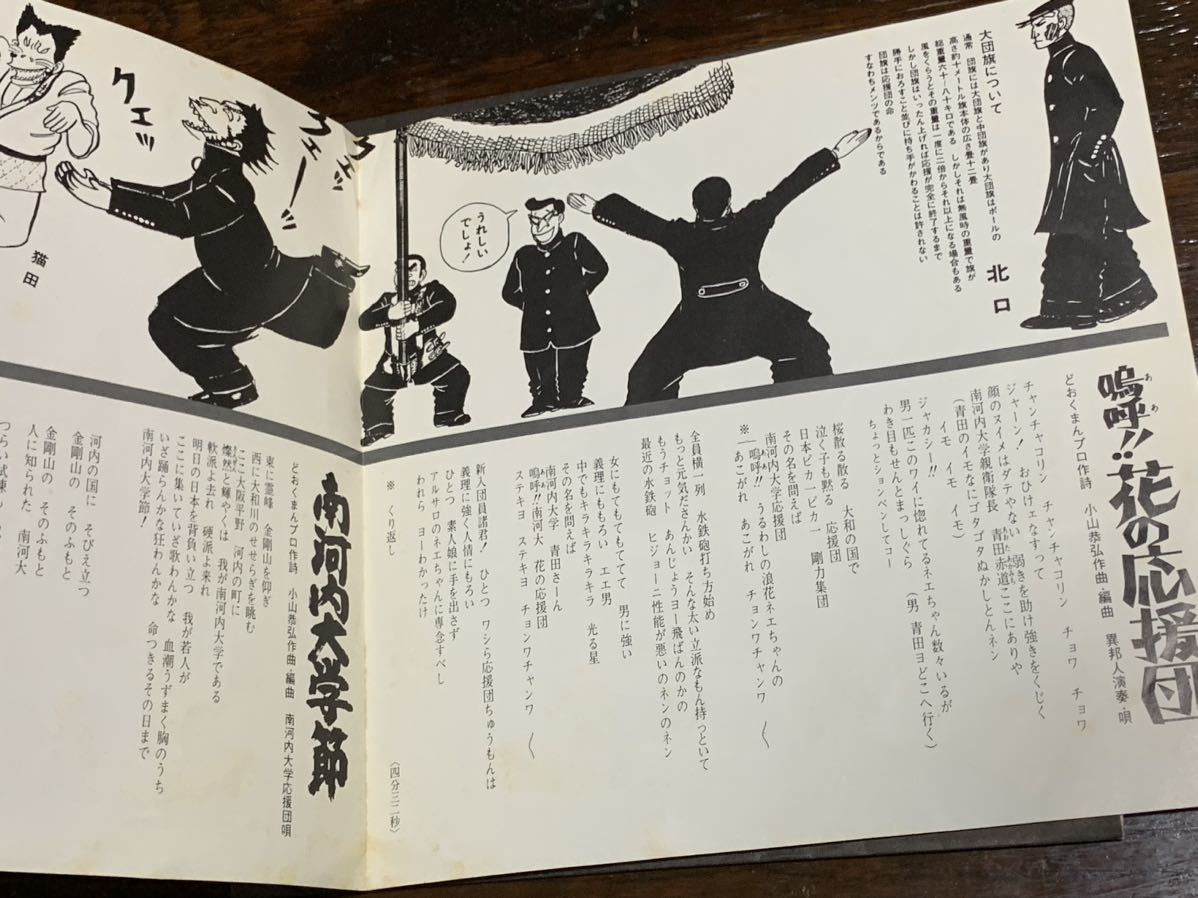 大団旗について
通常　団旗には大団旗と中団旗があり大団旗はポールの
高さ約十メートル旗本体の広さ畳十二畳
総重量六十〜八十キロである　しかしそれは無風時の重量で旗が
風をくらうとその重量は一度に二倍からそれ以上になる場合もある
しかし団旗はいったん上げれば応援が完全に終了するまで
勝手におろすこと並びに持ち手がかわることは許されない
団旗は応援団の命
すなわちメンツであるからである
北口
うれしいでしょ！
クェッ
クェ
クェッ
猫田
嗚呼!!花の応援団
どおくまんプロ作詩　小山恭弘作曲・編曲　異邦人演奏・唄
チャンチャコリン　チャンチャコリン　チョワ　チョワ
ジャーン！　おひけェなすって　弱きを助け強きをくじく
顔のヌイメはダテやない　青田赤道ここにありや
南河内大学親衛隊長
（青田のイモなにゴタゴタぬかしとんネン
イモ　イモ　イモ）
ジャカシー!!
男一匹このワイに惚れてるネエちゃん数々いるが
わき目もせんとまっしぐら　（男　青田ヨどこへ行く）
ちょっとションベンしてコー
桜散る散る　大和の国で
泣く子も黙る　応援団
日本ピカ一ピカ一　剛力集団
その名を問えば
南河内大学応援団
※嗚呼!!　うるわしの浪花ネエちゃんの
あこがれ　あこがれ　チョンワチャンワ　〱
全員横一列　水鉄砲打ち方始め
もっと元気ださんかい　そんな太い立派なもん持っといて
もうチョット　あんじょうヨー飛ばんのかの
最近の水鉄砲　ヒジョーニ性能が悪いのネンのネン
女にもてもてもてて　男に強い
義理にももろい　エエ男
中でもキラキラキラキラ　光る星
その名を問えば
南河内大学　青田さーん
嗚呼!!南河大　花の応援団
ステキヨ　ステキヨ　チョンワチャンワ　〱
新入団員諸君！　ひとつ　ワシら応援団ちゅうもんは
義理に強く人情にもろい
ひとつ　素人娘に手を出さず
アルサロのネエちゃんに専念すべし
われら　ヨーわかったけ
※　くり返し
（四分三二秒）
南河内大学節
どおくまんプロ作詩　小山恭弘作曲・編曲　南河内大学応援団唄
東に霊峰　金剛山を仰ぎ
西に大和川のせせらぎを眺む
ここ大阪平野　河内の町に
燦然と輝やくは　我が南河内大学である
軟派よ去れ　硬派よ来れ
明日の日本を背負い立つ　我が若人が
ここに集いていざ歌わんかな　血潮うずまく胸のうち
いざ踊らんかな狂わんかな　命つきるその日まで
南河内大学節！
河内の国に　そびえ立つ
金剛山の　そのふもと
金剛山の　そのふもと
人に知られた　南河大
つらい試練